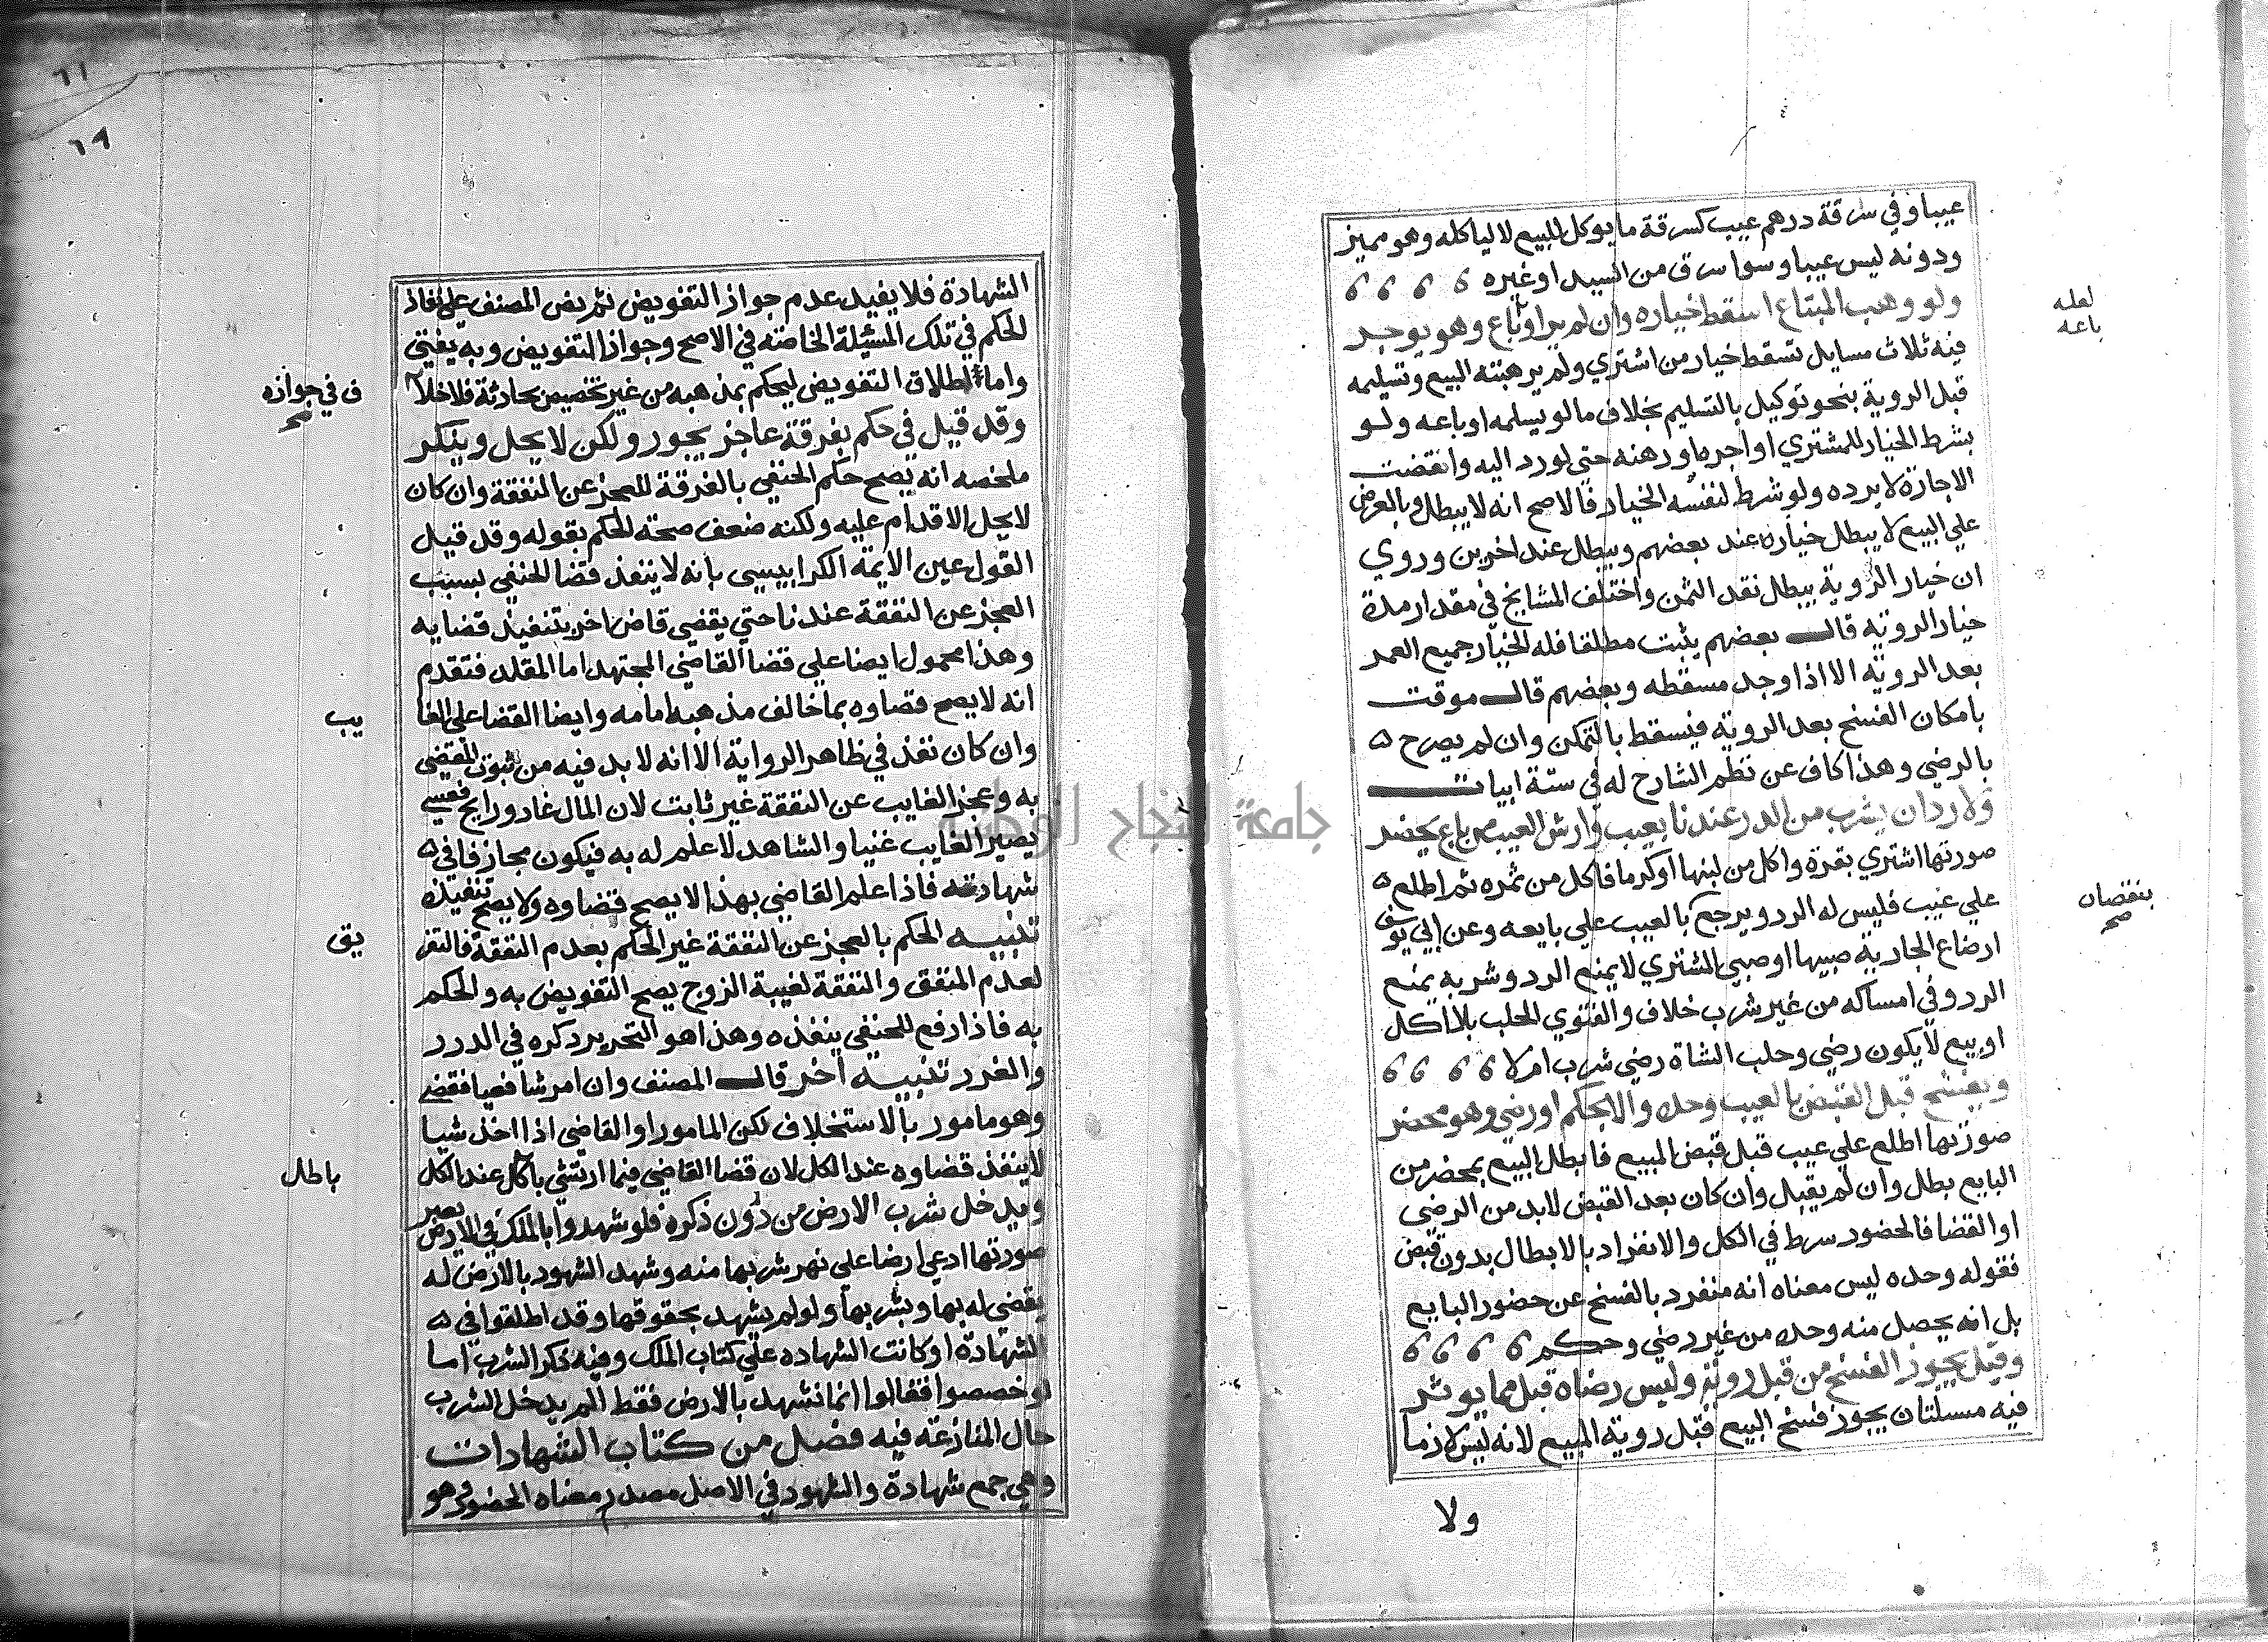 عيبا وفي سرقة درهم عيب كسرقة ما يوكل للبيع لا لياكله وهو مميز
ودونه ليس عيبا وسوا سرق من السيد او غيره
ولو وهب المبتاع اسقط خياره وان لم ير او باع وهو يوجد
فيه ثلاث مسايل تسقط خيار من اشتري ولم ير هبته البيع وتسليمه
قبل الروية بنحو توكيل بالتسليم بخلاف ما لو يسلمه او باعه ولو
لعله
باعه
بشرط الخيار للمشتري او اجره او رهنه حتي لو رد اليه وانقضت
الاجارة لا يرده ولو شرط لنفسه الخيار فالاصح انه لا يبطل وبالعرض
علي البيع لا يبطل خياره عند بعضهم ويبطل عند اخرين وروي
ان خيار الروية يبطل نقد الثمن واختلف المشايخ في مقدار مدة
خيار الروية قال بعضهم يثبت مطلقا فله الخيار جميع العمر
بعد الروية الا اذا وجد مسقطه وبعضهم قال موقت
بامكان الفسخ بعد الروية فيسقط بالتمكن وان لم يصرح
بالرضي وهذا كاف عن نظم الشارح له في ستة ابيات
ولا رد ان يشرب من الدر عندنا بعيب وارش العيب من باع يحضر
صورتها اشتري بقرة واكل من لبنها او كرما فاكل من ثمره ثم اطلع
علي عيب فليس له الرد ويرجع بالعيب علي بايعه وعن ابي يوسف
بنقصان
صح
ارضاع الجارية صبيها او صبي المشتري لا يمنع الرد وشربه يمنع
الرد وفي امساكه من غير شرب خلاف والفتوي الحلب بلا اكل
او بيع لا يكون رضي وحلب الشاة رضي شرب ام لا
ويفسخ قبل القبض بالعيب وحده والا بحكم او رضي وهو محضر
صورتها اطلع علي عيب قبل قبض المبيع فابطل البيع بمحضر من
البايع بطل وان لم يقبل وان كان بعد القبض لا بد من الرضي
او القضا فالحضور سرط في الكل والانفراد بالابطال بدون قبض
فقوله وحده ليس معناه انه منفرد بالفسخ عن حضور البايع
بل انه يحصل منه وحده من غير رضي وحكم
وقيل يجوز الفسخ من قبل روية وليس رضاه قبل مما يوثر
فيه مسلتان يجوز فسخ البيع قبل روية المبيع لانه ليس لازما
ولا
٦١
٦٩
الشهادة فلا يفيد عدم جواز التفويض ثم نص المصنف علي نفاذ
الحكم في تلك المسئلة الخاصة في الاصح وجواز التفويض وبه يفتي
واما اطلاق التفويض ليحكم بمذهبه من غير تخصيص بحادثة فلا خلا
ف في جوازه
صح
وقد قيل في حكم بفرقة عاجز يجوز ولكن لا يحل وينكر
ملخصه انه يصح حكم الحنفي بالفرقة للعجز عن النفقة وان كان
لا يحل الاقدام عليه ولكنه ضعف صحته الحكم بقوله وقد قيل
القول عين الايمة الكرابيسي بانه لا ينفذ قضا الحنفي بسبب
العجز عن النفقة عندنا حتي يقضي قاض اخر بتنفيذ قضايه
وهذا محمول ايضا علي قضا القاضي المجتهد اما المقلد فتقدم
انه لا يصح قضاوه بما خالف مذهبه امامه وايضا القضا علي الغا
يب
وان كان نفذ في ظاهر الرواية الا انه لا بد فيه من ثبوت المقضي
به وعجز الغايب عن النفقة غير ثابت لان المال غاد ورايح فعسي
يصير الغايب غنيا والشاهد لا علم له به فيكون مجازفا في
شهادته فاذا علم القاضي بهذا لا يصح قضاوه ولا يصح تنفيذه
تنبيه الحكم بالعجز عن النفقة غير الحكم بعدم النفقة فالتفر
يق
لعدم المنفق والنفقة لغيبة الزوج يصح التفويض به والحكم
به فاذا رفع للحنفي ينفذه وهذا هو التحرير ذكره في الدرر
والغرر تنبيه اخر قال المصنف وان امر شافعيا فقضي
وهو مامور بالاستخلاف لكن المامور او القاضي اذا اخذ شيا
لا ينفذ قضاوه عند الكل لان قضا القاضي فيما ارتشي باكل عند الكل
باطل
ويدخل شرب الارض من دون ذكره فلو شهدوا بالملك في الارض يعبر
صورتها ادعي ارضا علي نهر شربها منه وشهد الشهود بالارض له
يقضي له بها وبشربها ولو لم يشهد بحقوقها وقد اطلقوا في
الشهادة او كانت الشهاده علي كتاب الملك وفيه ذكر الشرب اما
لو خصصوا فقالوا انما نشهد بالارض فقط لم يدخل الشرب
حال المنازعة فيه فصل من كتاب الشهادات
وهي جمع شهادة والشهود في الاصل مصدر معناه الحضور وهو
جامعة النجاح الوطنية